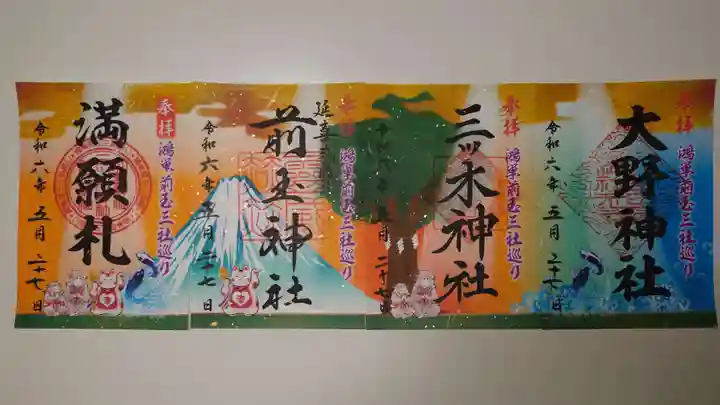 奉拝
鴻巣前玉三社巡り
大野神社
令和六年 五月 二十七日
奉拝
鴻巣前玉三社巡り
三ツ木神社
令和六年 五月 二十七日
鴻巣前玉三社巡り
前玉神社
令和六年 五月 二十七日
奉拝
鴻巣前玉三社巡り
満願札
令和六年 五月 二十七日